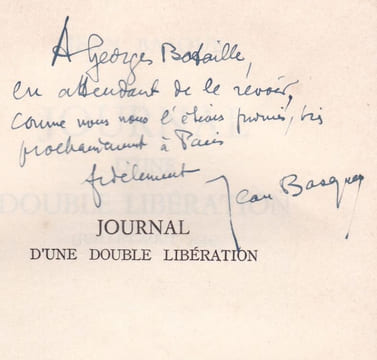 A Georges Bataille,
en attendant de le revoir,
comme nous nous l'étions promis, très
prochainement à Paris
fidèlement
Jean Basques
JOURNAL
D'UNE DOUBLE LIBÉRATION